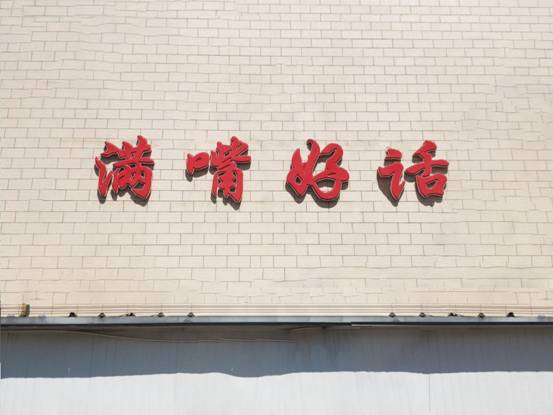 满嘴好话